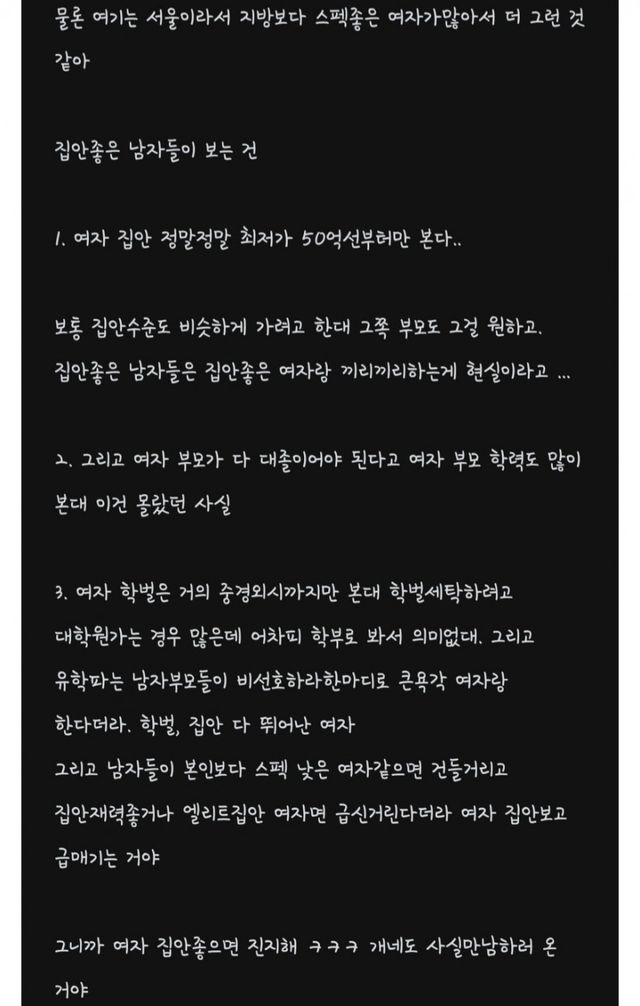 물론 여기는 서울이라서 지방보다 스펙좋은 여자가많아서 더 그런 것
같아
집안좋은 남자들이 보는 건
1. 여자 집안 정말정말 최저가 50억선부터만 본다..
보통 집안수준도 비슷하게 가려고 한대 그쪽 부모도 그걸 원하고.
집안좋은 남자들은 집안좋은 여자랑 끼리끼리하는게 현실이라고 ...
2. 그리고 여자 부모가 다 대졸이어야 된다고 여자 부모 학력도 많이
본대 이건 몰랐던 사실
3. 여자 학벌은 거의 중경외시까지만 본대 학벌세탁하려고
대학원가는 경우 많은데 어차피 학부로 봐서 의미없대. 그리고
유학파는 남자부모들이 비선호하라한마디로 큰욕각 여자랑
한다더라. 학벌, 집안 다 뛰어난 여자
그리고 남자들이 본인보다 스펙 낮은 여자같으면 건들거리고
집안재력좋거나 엘리트집안 여자면 굽신거린다더라 여자 집안보고
급매기는 거야
그니까 여자 집안좋으면 진지해 ㅋㅋㅋ 걔네도 사실만남하러 온
거야